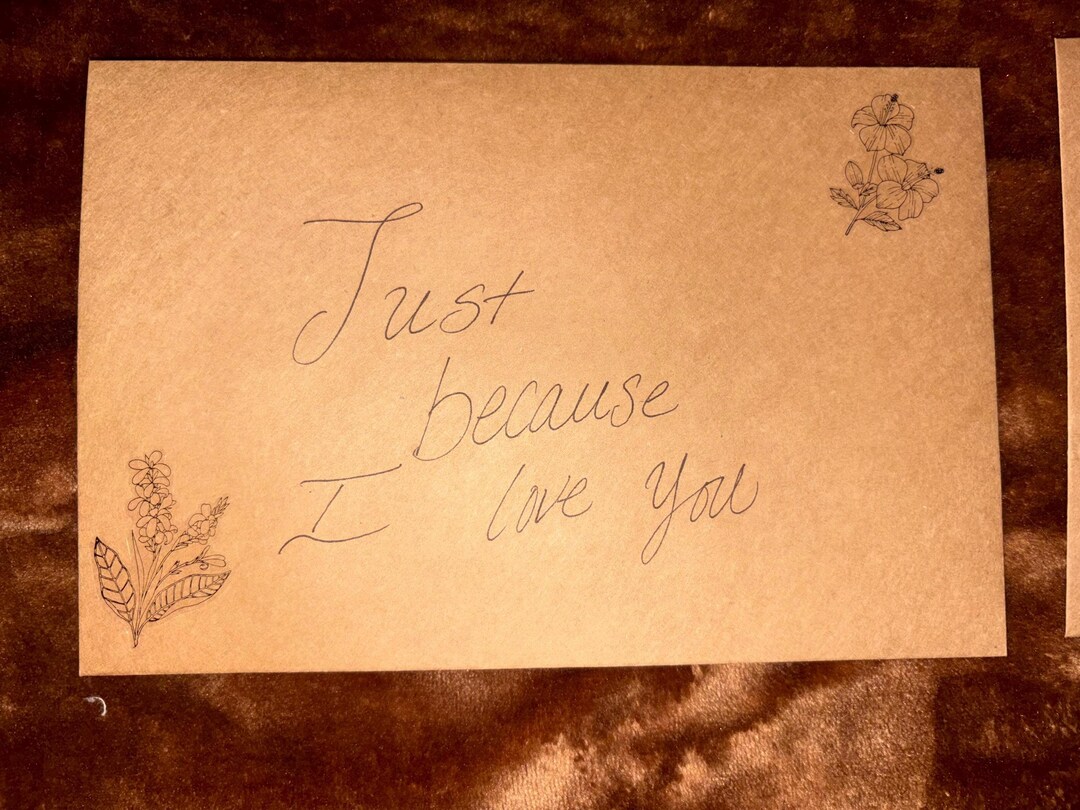 Just
because
I love you